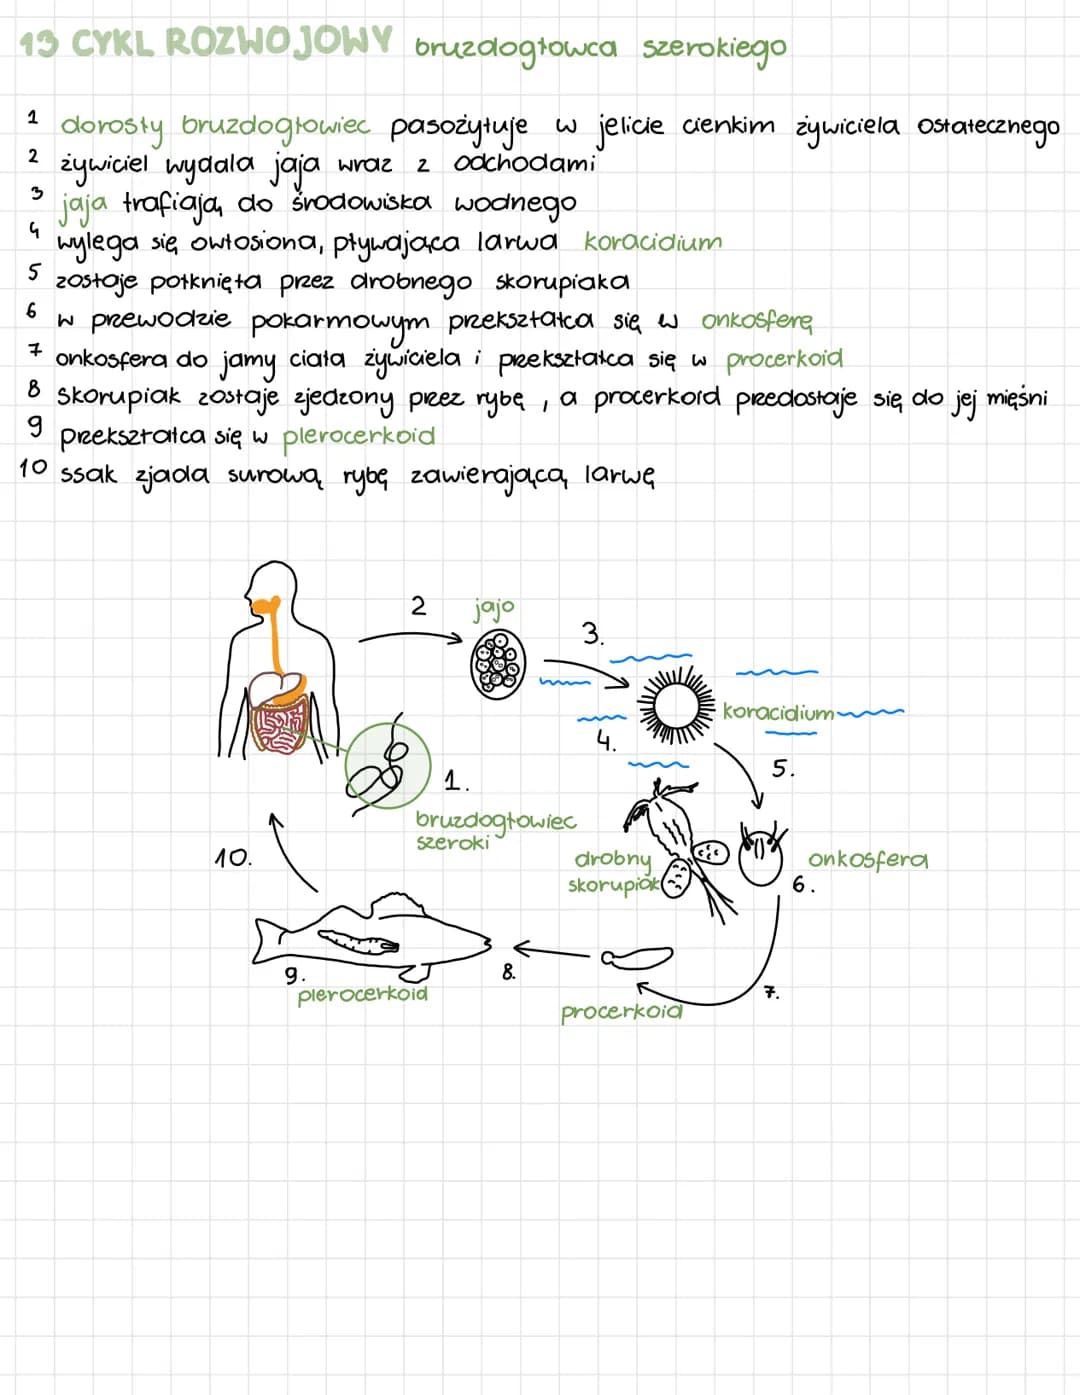 13 CYKL ROZWOJOWY bruzdogłowca szerokiego
1 dorosły bruzdogłowiec pasożytuje w jelicie cienkim żywiciela ostatecznego
2 żywiciel wydala jaja wraz z odchodami
3 jaja trafiają do środowiska wodnego
4 wylega się owłosiona, pływająca larwa koracidium
5 zostaje połknięta przez drobnego skorupiaka
6 w przewodzie pokarmowym przekształca się w onkosferę
7 onkosfera do jamy ciała żywiciela i przekształca się w procerkoid
8 skorupiak zostaje zjedzony przez rybę, a procerkoid przedostaje się do jej mięśni
9 przekształca się w plerocerkoid
10 ssak zjada surową rybę zawierającą larwę
2 jajo
3.
koracidium
4.
5.
1.
bruzdogłowiec
szeroki
10.
drobny
skorupiak
onkosfera
6.
9.
plerocerkoid
8.
7.
procerkoid